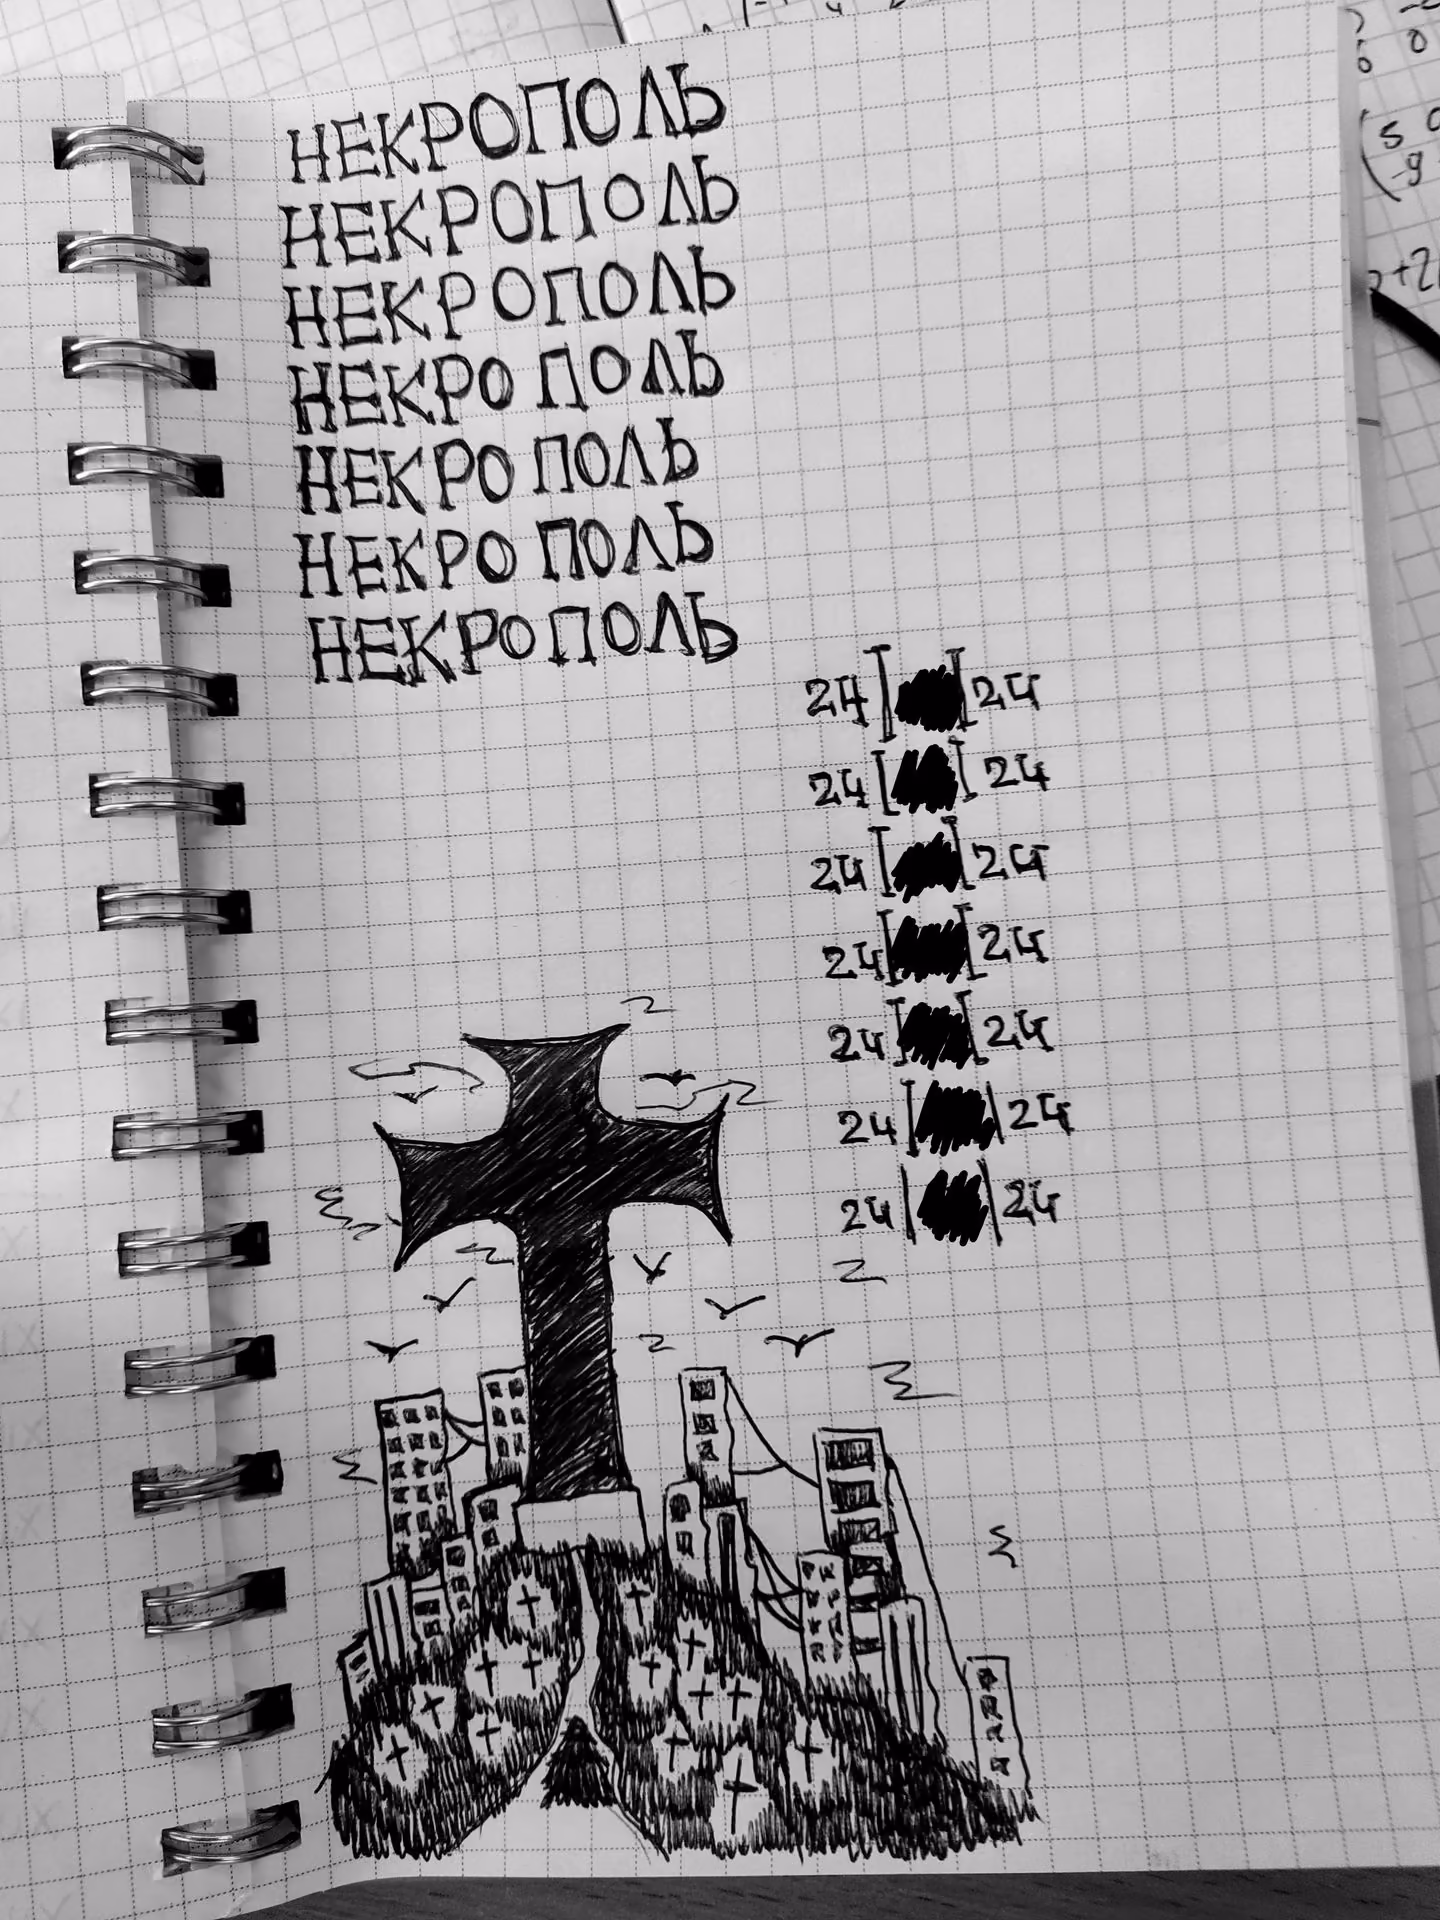 НЕКРОПОЛЬ
НЕКРОПОЛЬ
НЕКРОПОЛЬ
НЕКРОПОЛЬ
НЕКРОПОЛЬ
НЕКРОПОЛЬ
НЕКРОПОЛЬ
24 [ ] 24
24 [ ] 24
24 [ ] 24
24 [ ] 24
24 [ ] 24
24 | | 24
24 | | 24